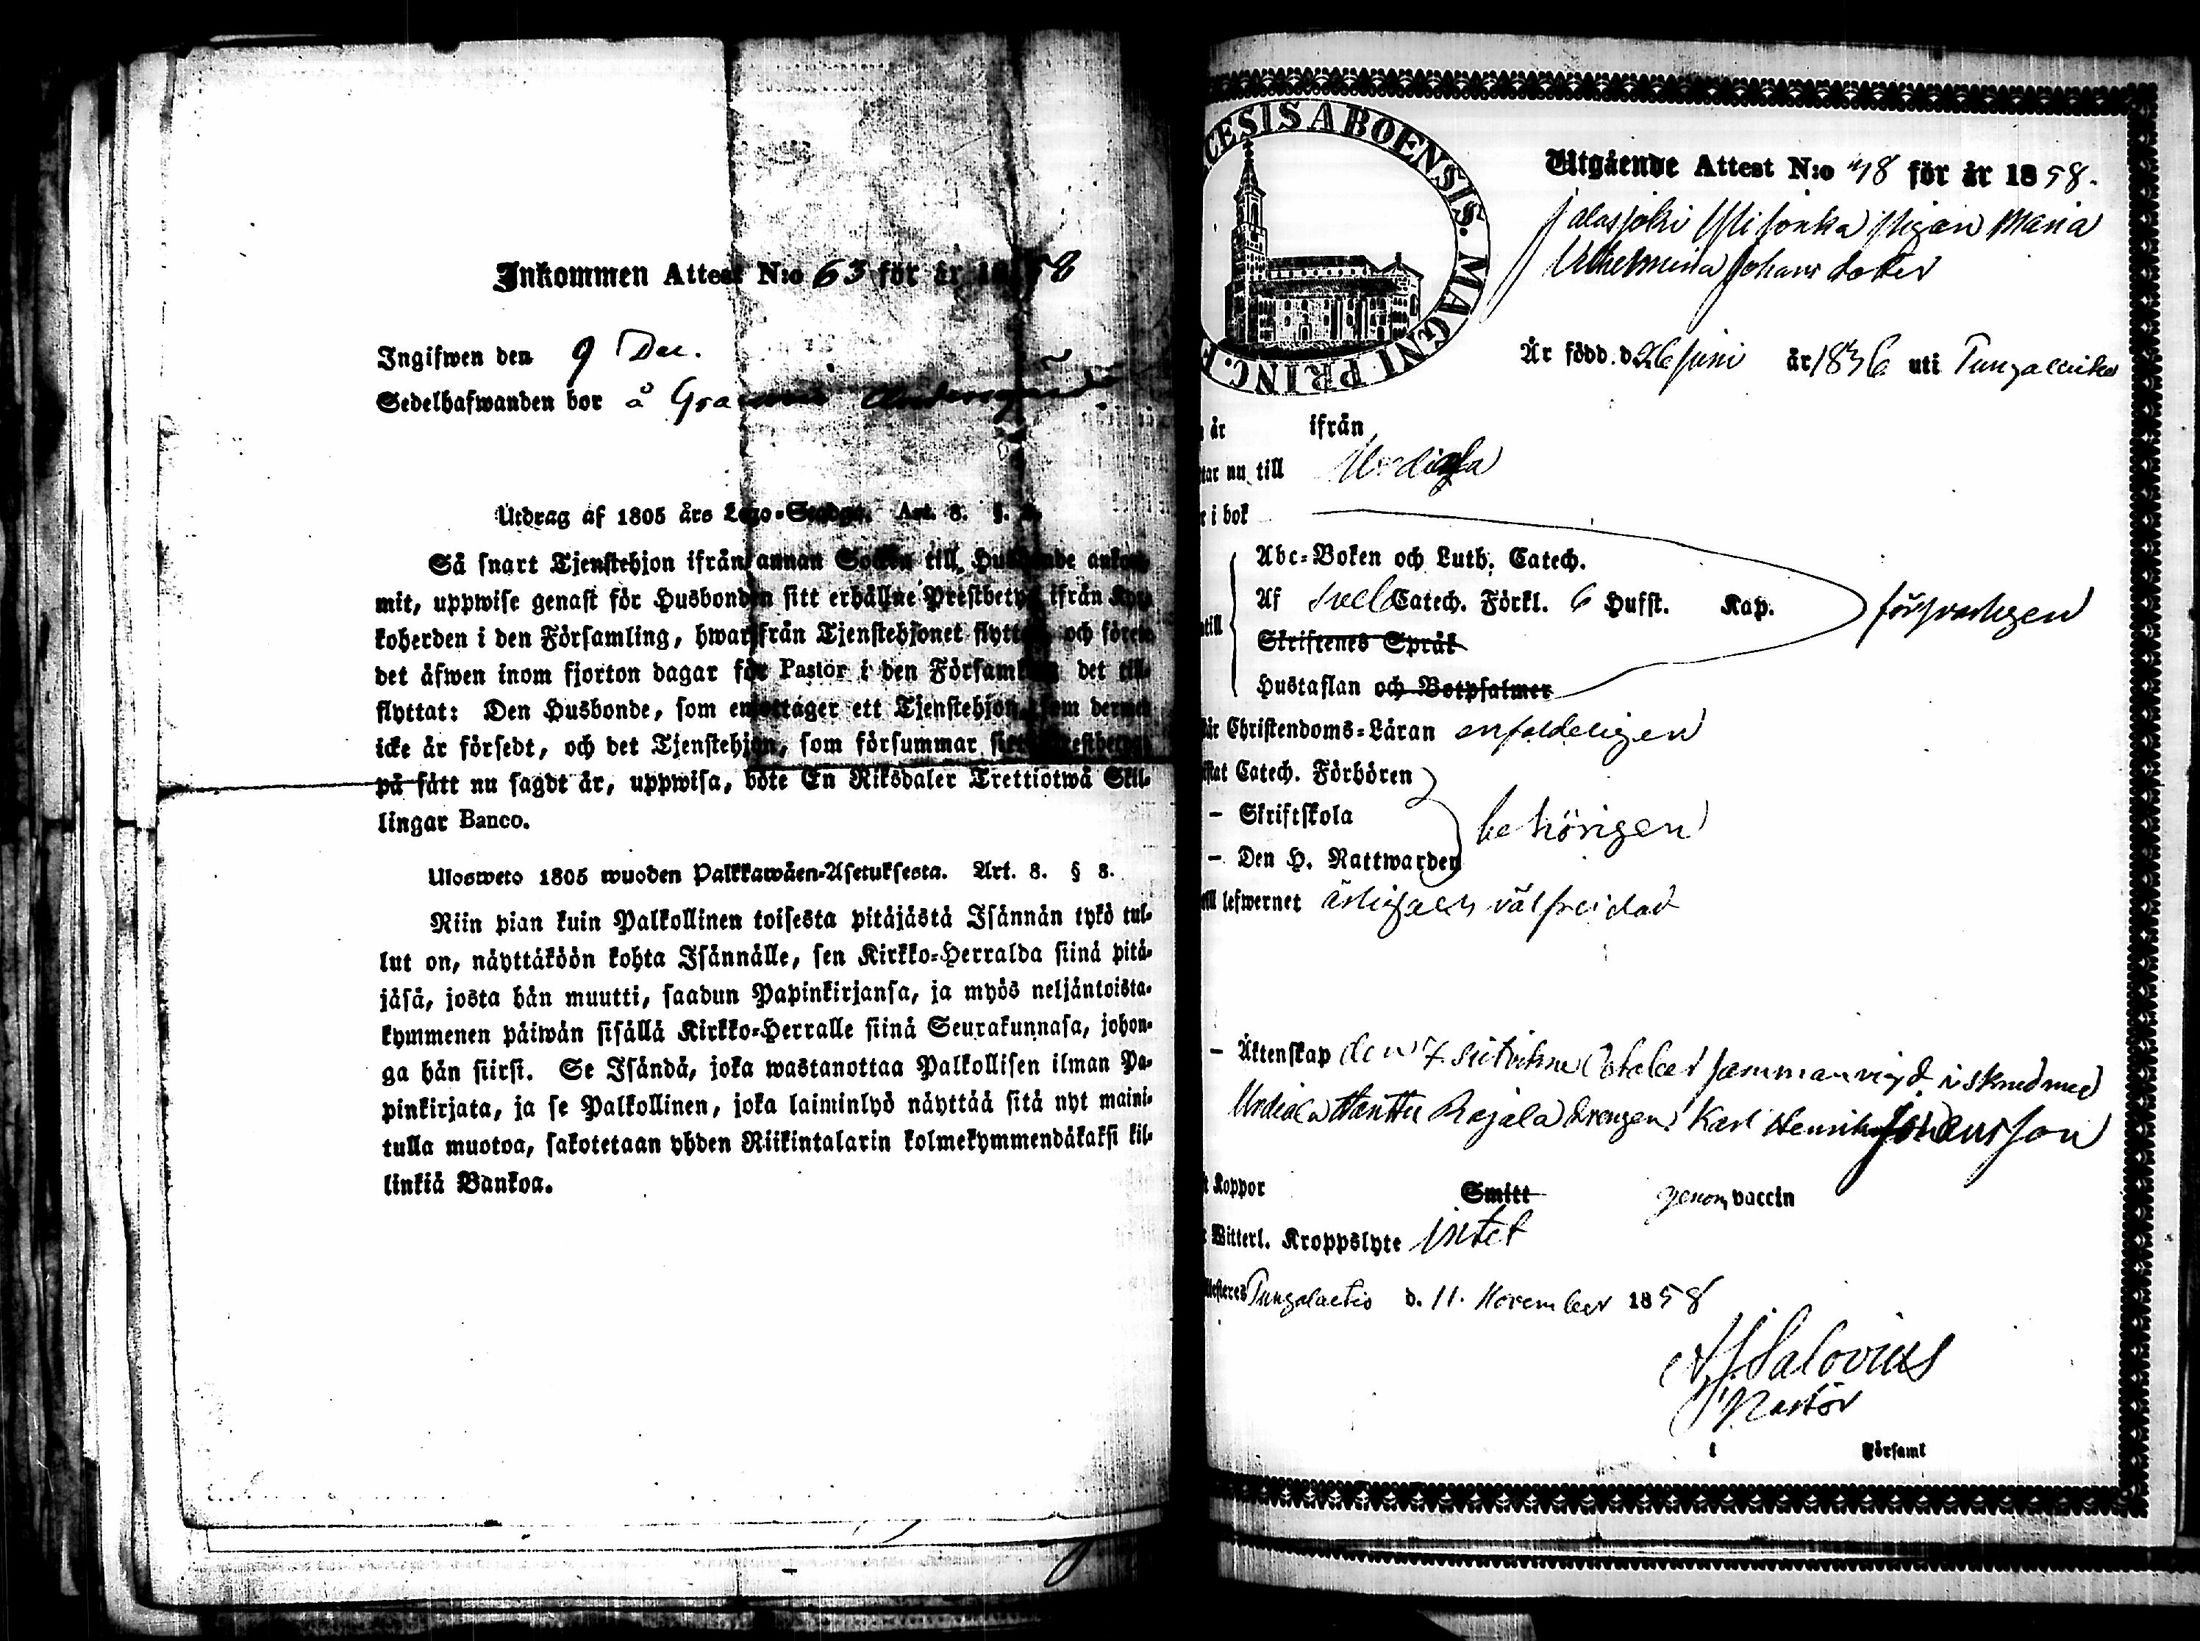 Inkommen Attest N:o 63 för år 1858
Ingifwen den 9 Dec.
Sedelhafwanden bor å
Utdrag af 1805 års Lego-Stadga. Art. 8. §. 8.
Så snart Tjenstehjon ifrån annan Socken till Husbonde ankom-
mit, uppwise genast för Husbonden sitt erhållne Prestbetyg ifrån Kyr-
koherden i den Församling, hwarifrån Tjenstehjonet flyttat, och förete
det äfwen inom fjorton dagar för Pastor i den Församling det till-
flyttat: Den Husbonde, som emottager ett Tjenstehjon, som dermed
icke är försedt, och det Tjenstehjon, som försummar sitt Prestbetyg
på sätt nu sagdt är, uppwisa, böte En Riksdaler Trettiotwå Skil-
lingar Banco.
Ulosweto 1805 wuoden Palkkawäen-Asetuksesta. Art. 8. § 8.
Niin pian kuin Palkollinen toisesta pitäjästä Isännän tykö tul-
lut on, näyttäköön kohta Isännälle, sen Kirkko-Herralda siinä pitä-
jäsä, josta hän muutti, saadun Papinkirjansa, ja myös neljäntoista-
kymmenen päiwän sisällä Kirkko-Herralle siinä Seurakunnasa, johon-
ga hän siirsi. Se Isändä, joka wastanottaa Palkollisen ilman Pa-
pinkirjata, ja se Palkollinen, joka laiminlyö näyttää sitä nyt maini-
tulla muotoa, sakotetaan yhden Riikintalarin kolmekymmendäkaksi kil-
linkiä Bankoa.
CESIS ABOENSIS. MAGNI PRINC. F
Utgående Attest N:o 48 för år 1858.
Jalasjoki pigan Maria
Wilhelmina Johansdotter
Är född d. 26 Juni år 1836 uti Pungalaitio
år ifrån
tar nu till Urdiala
r i bok
Abc-Boken och Luth. Catech.
Af Svel. Catech. Förkl. 6 Hufst. Kap.
ntill
Skriftenes Språk
Hustaflan och Botpsalmer
försvarligen
är Christendoms-Läran enfaldeligen
istat Catech. Förhören
- Skriftskola
behörigen
- Den H. Nattwarden
till lefwernet ärlig och välfrejdad
- Äktenskap den 7 October sammanvigd med
Urdiala Rajala drengen Karl Henrik Johansson
t Koppor Smitt genom vaccin
r Witterl. Kroppslyte intet
ttesteres Pungalaitio d. 11. November 1858
Salovius
Pastor
i Församl